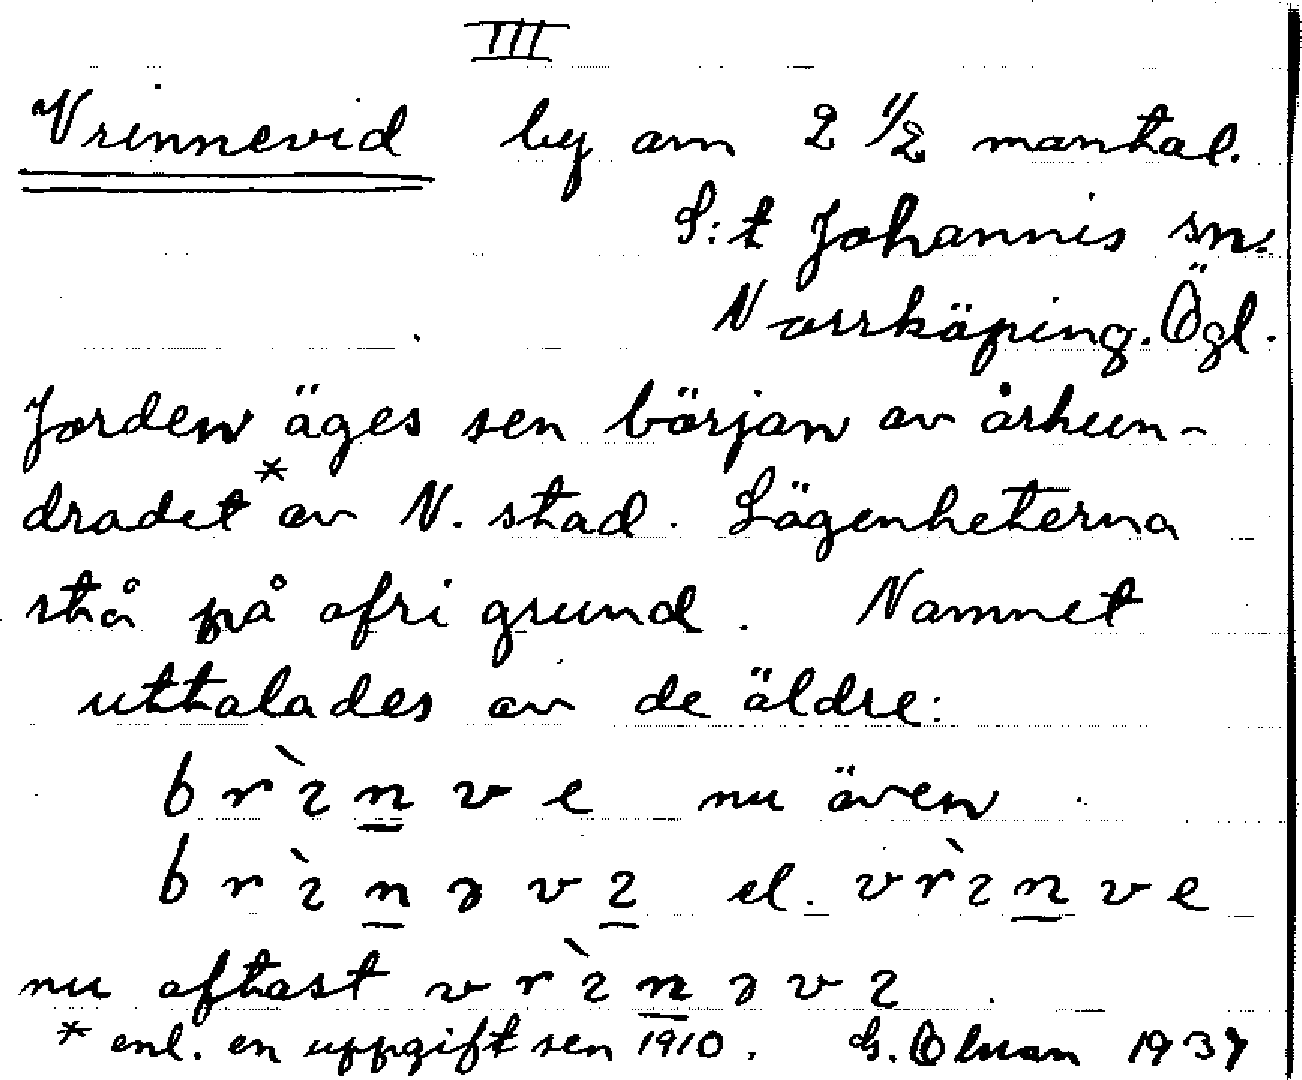 III
Vrinnevid by om 2 1/2 mantal.
S:t Johannis sn.
Norrköping. Ögl.
Jorden äges sen början av århun-
dradet* av N. stad. Lägenheterna
stå på ofri grund. Namnet
uttalades av de äldre:
brı̀n̲ve nu även
brı̀n̲əvı̲ el. vrı̀n̲ve
nu oftast vrı̀n̲əvı
* enl. en uppgift sen 1910. G. Olsson 1937